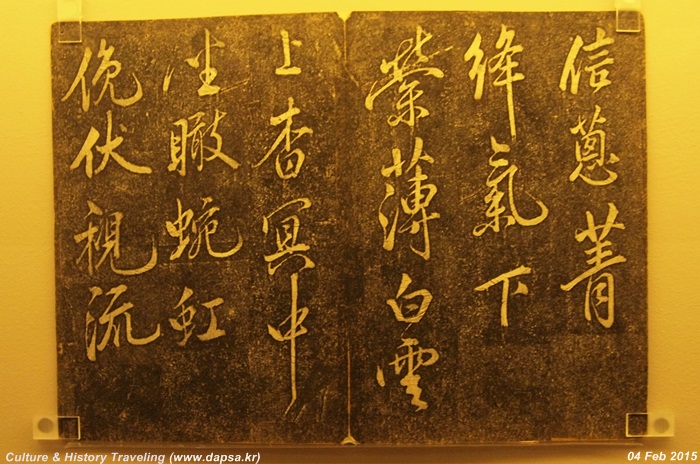 信蔥菁
絳氣下
縈薄白雲
上杳冥中
坐瞰蜿虹
俛伏視流
Culture & History Traveling (www.dapsa.kr)
04 Feb 2015